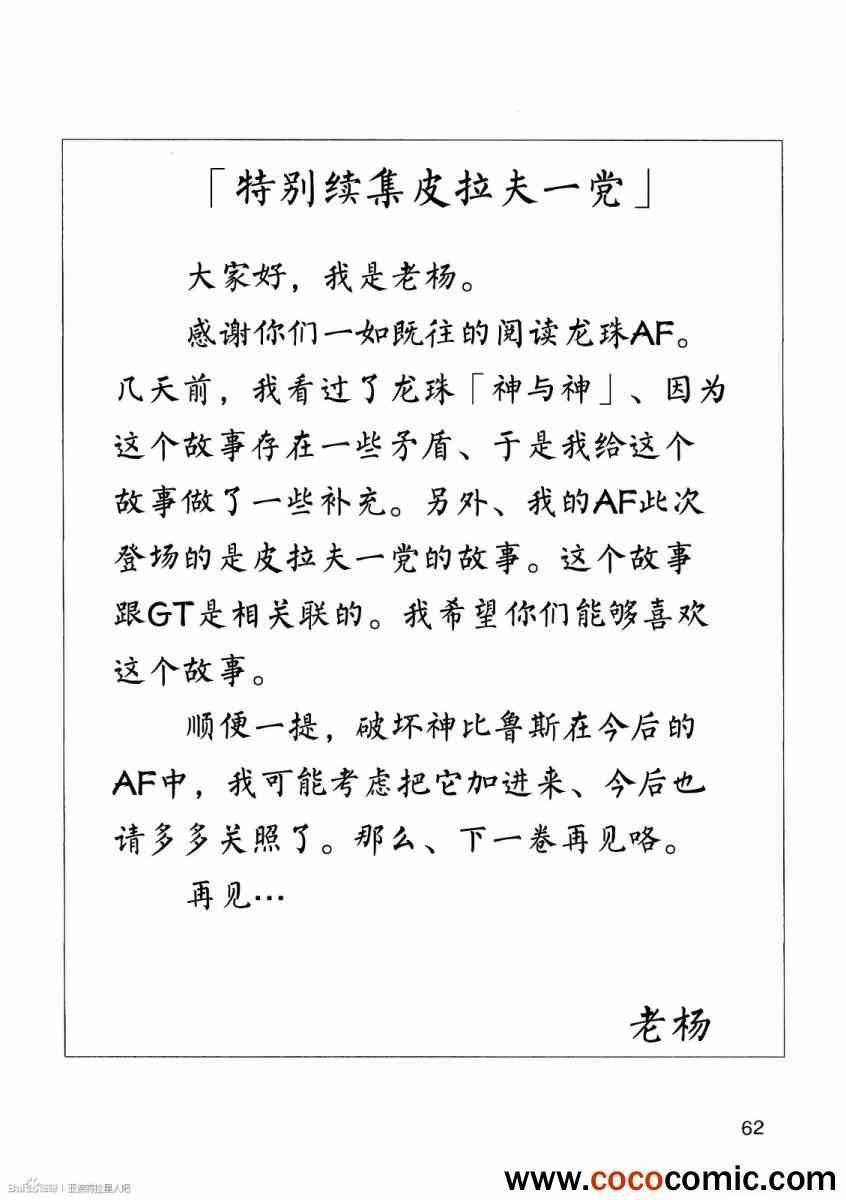 「特别续集皮拉夫一党」
大家好，我是老杨。
感谢你们一如既往的阅读龙珠AF。
几天前，我看过了龙珠「神与神」、因为
这个故事存在一些矛盾、于是我给这个
故事做了一些补充。另外、我的AF此次
登场的是皮拉夫一党的故事。这个故事
跟GT是相关联的。我希望你们能够喜欢
这个故事。
顺便一提，破坏神比鲁斯在今后的
AF中，我可能考虑把它加进来、今后也
请多多关照了。那么、下一卷再见咯。
再见…
老杨
62
www.cococomic.com